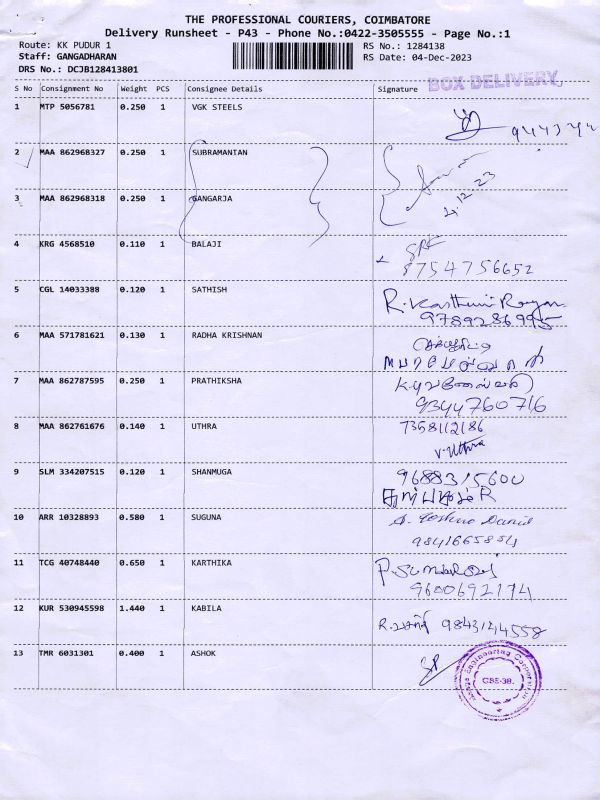 THE PROFESSIONAL COURIERS, COIMBATORE
Delivery Runsheet - P43 - Phone No.:0422-3505555 - Page No.:1
Route: KK PUDUR 1 RS No.: 1284138
Staff: GANGADHARAN RS Date: 04-Dec-2023
DRS No.: DCJB128413801
BOX DELIVERY
S No Consignment No Weight PCS Consignee Details Signature
1 MTP 5056781 0.250 1 VGK STEELS
2 MAA 862968327 0.250 1 SUBRAMANIAN
3 MAA 862968318 0.250 1 GANGARJA
4.12.23
4 KRG 4568510 0.110 1 BALAJI
8754756652
5 CGL 14033388 0.120 1 SATHISH
9789286995
6 MAA 571781621 0.130 1 RADHA KRISHNAN
7 MAA 862787595 0.250 1 PRATHIKSHA
9344760716
8 MAA 862761676 0.140 1 UTHRA 7358112186
V. Uthra
9 SLM 334207515 0.120 1 SHANMUGA 9688315600
10 ARR 10328893 0.580 1 SUGUNA
9841665854
11 TCG 40748440 0.650 1 KARTHIKA
9600692174
12 KUR 530945598 1.440 1 KABILA
13 TMR 6031301 0.400 1 ASHOK
CBE-38.